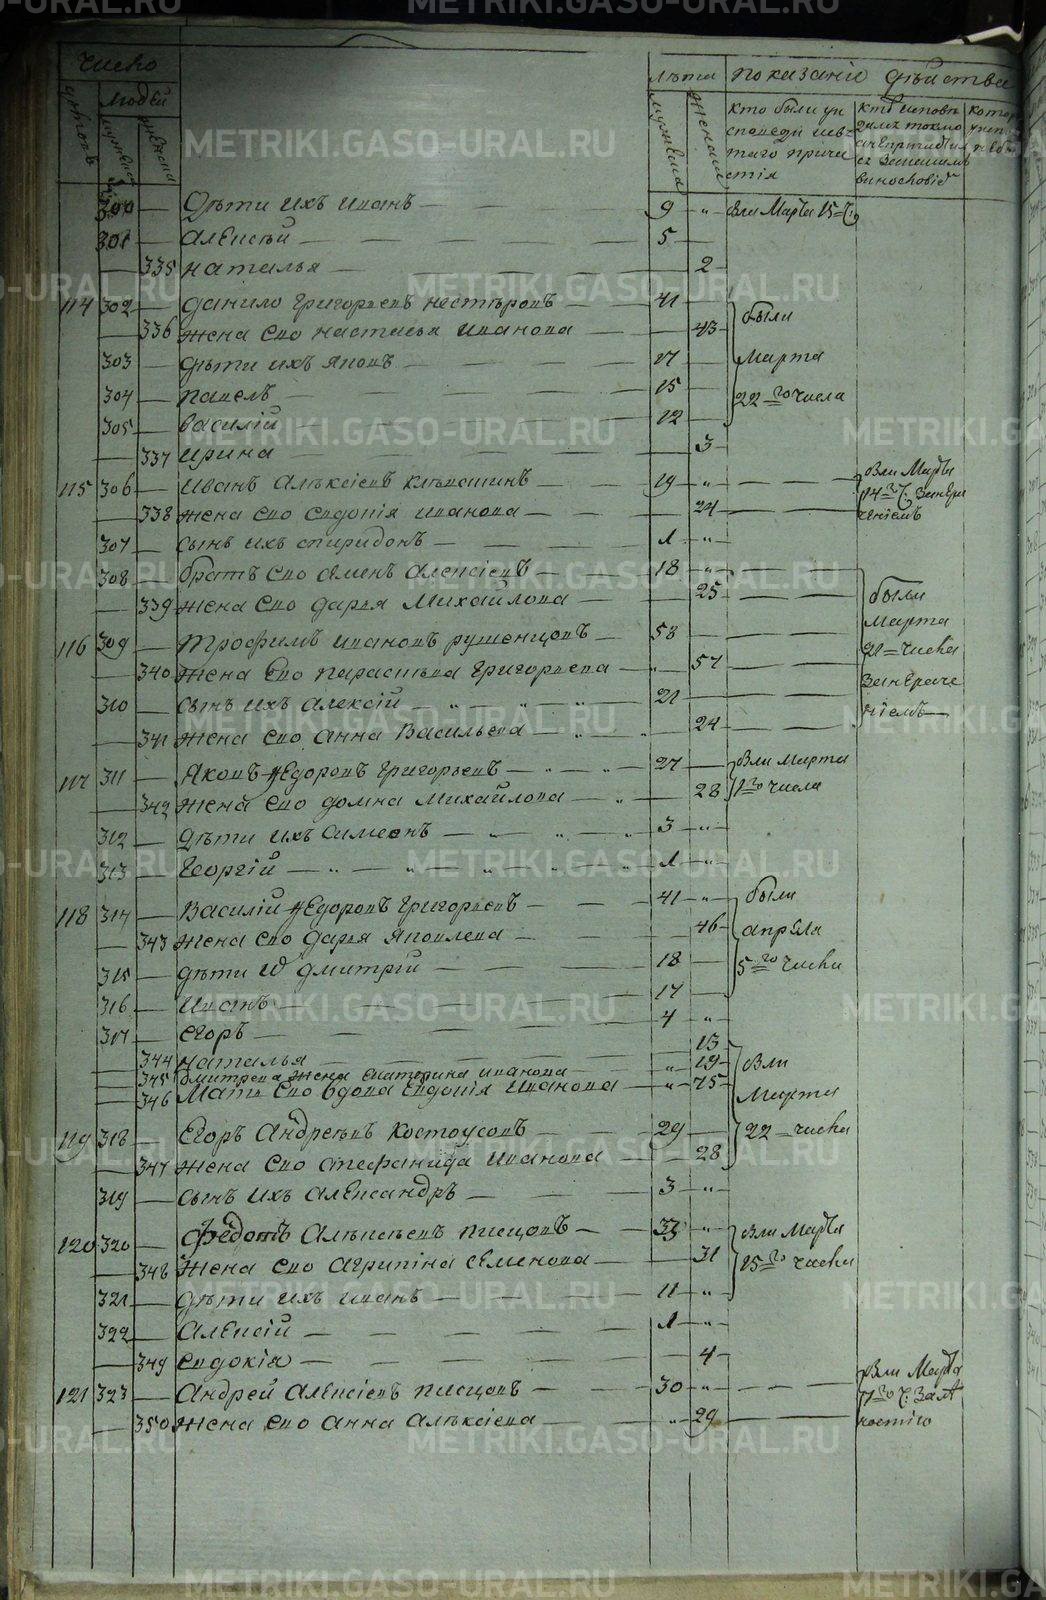 число
людей
лѣта показаніи дѣиства
кто были ув
споведи исвѣ
таго прича
стія
300 Дѣти ихъ иванъ 9 „ были Марта 15 г. ч.
301 алексѣй 5
335 наталья 2
114 302 данило григорьевъ нестѣровъ 41 были
336 жена ево настасья иванова 43
303 дѣти ихъ яковъ 17 марта
304 павелъ 15 22 го числа
305 василій 12
337 ирина 3
115 306 иванъ алѣксіевъ 19 „ были Марта
338 жена ево евдокія иванова 24
307 сынъ ихъ спиридонъ 1 „
308 братъ ево семенъ алексіевъ 18 „
339 жена ево дарья михайлова 25 были
116 309 трофимъ ивановъ рушенцовъ 58 марта
340 жена ево парасковья григорьева „ 57 21 числа
310 сынъ ихъ алексій 21
341 жена ево анна васильева 24
117 311 яковъ федоровъ григорьевъ 27 были марта
342 жена ево домна михайлова 28 1 го числа
312 дѣти ихъ симеонъ 3 „
313 георгій 1 „
118 314 василій федоровъ григорьевъ 41 „ были
343 жена ево дарья яковлева 46 апрѣля
315 дѣти дмитрій 18 5 го числа
316 иванъ 17
317 егоръ 4 „
344 наталья 13
345 дмитрева жена екатерина иванова „ 19 были
346 мать ево вдова евдокія иванова „ 75 марта
119 318 егоръ андреевъ костоусовъ 29 22 числа
347 жена ево стефанида иванова 28
319 сынъ ихъ александръ 3 „
120 320 федотъ алѣксѣевъ писцовъ 33 „ были марта
348 жена ево агрипіна семенова 31 15 го числа
321 дѣти ихъ иванъ 11 „
322 алексій 1 „
349 евдокія 4
121 323 андрей алексіевъ писцовъ 30 „ были марта
350 жена ево анна алѣксіева „ 29
METRIKI.GASO-URAL.RU